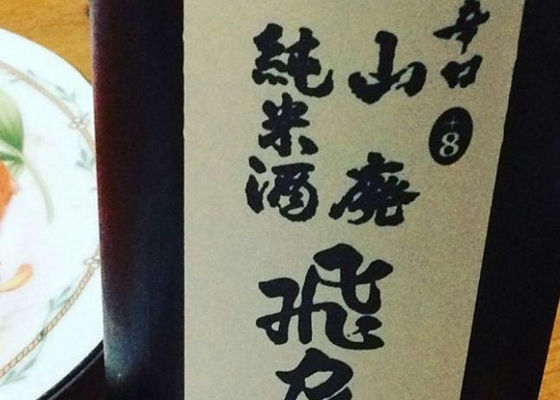 辛口
+8
山廃
純米酒
飛